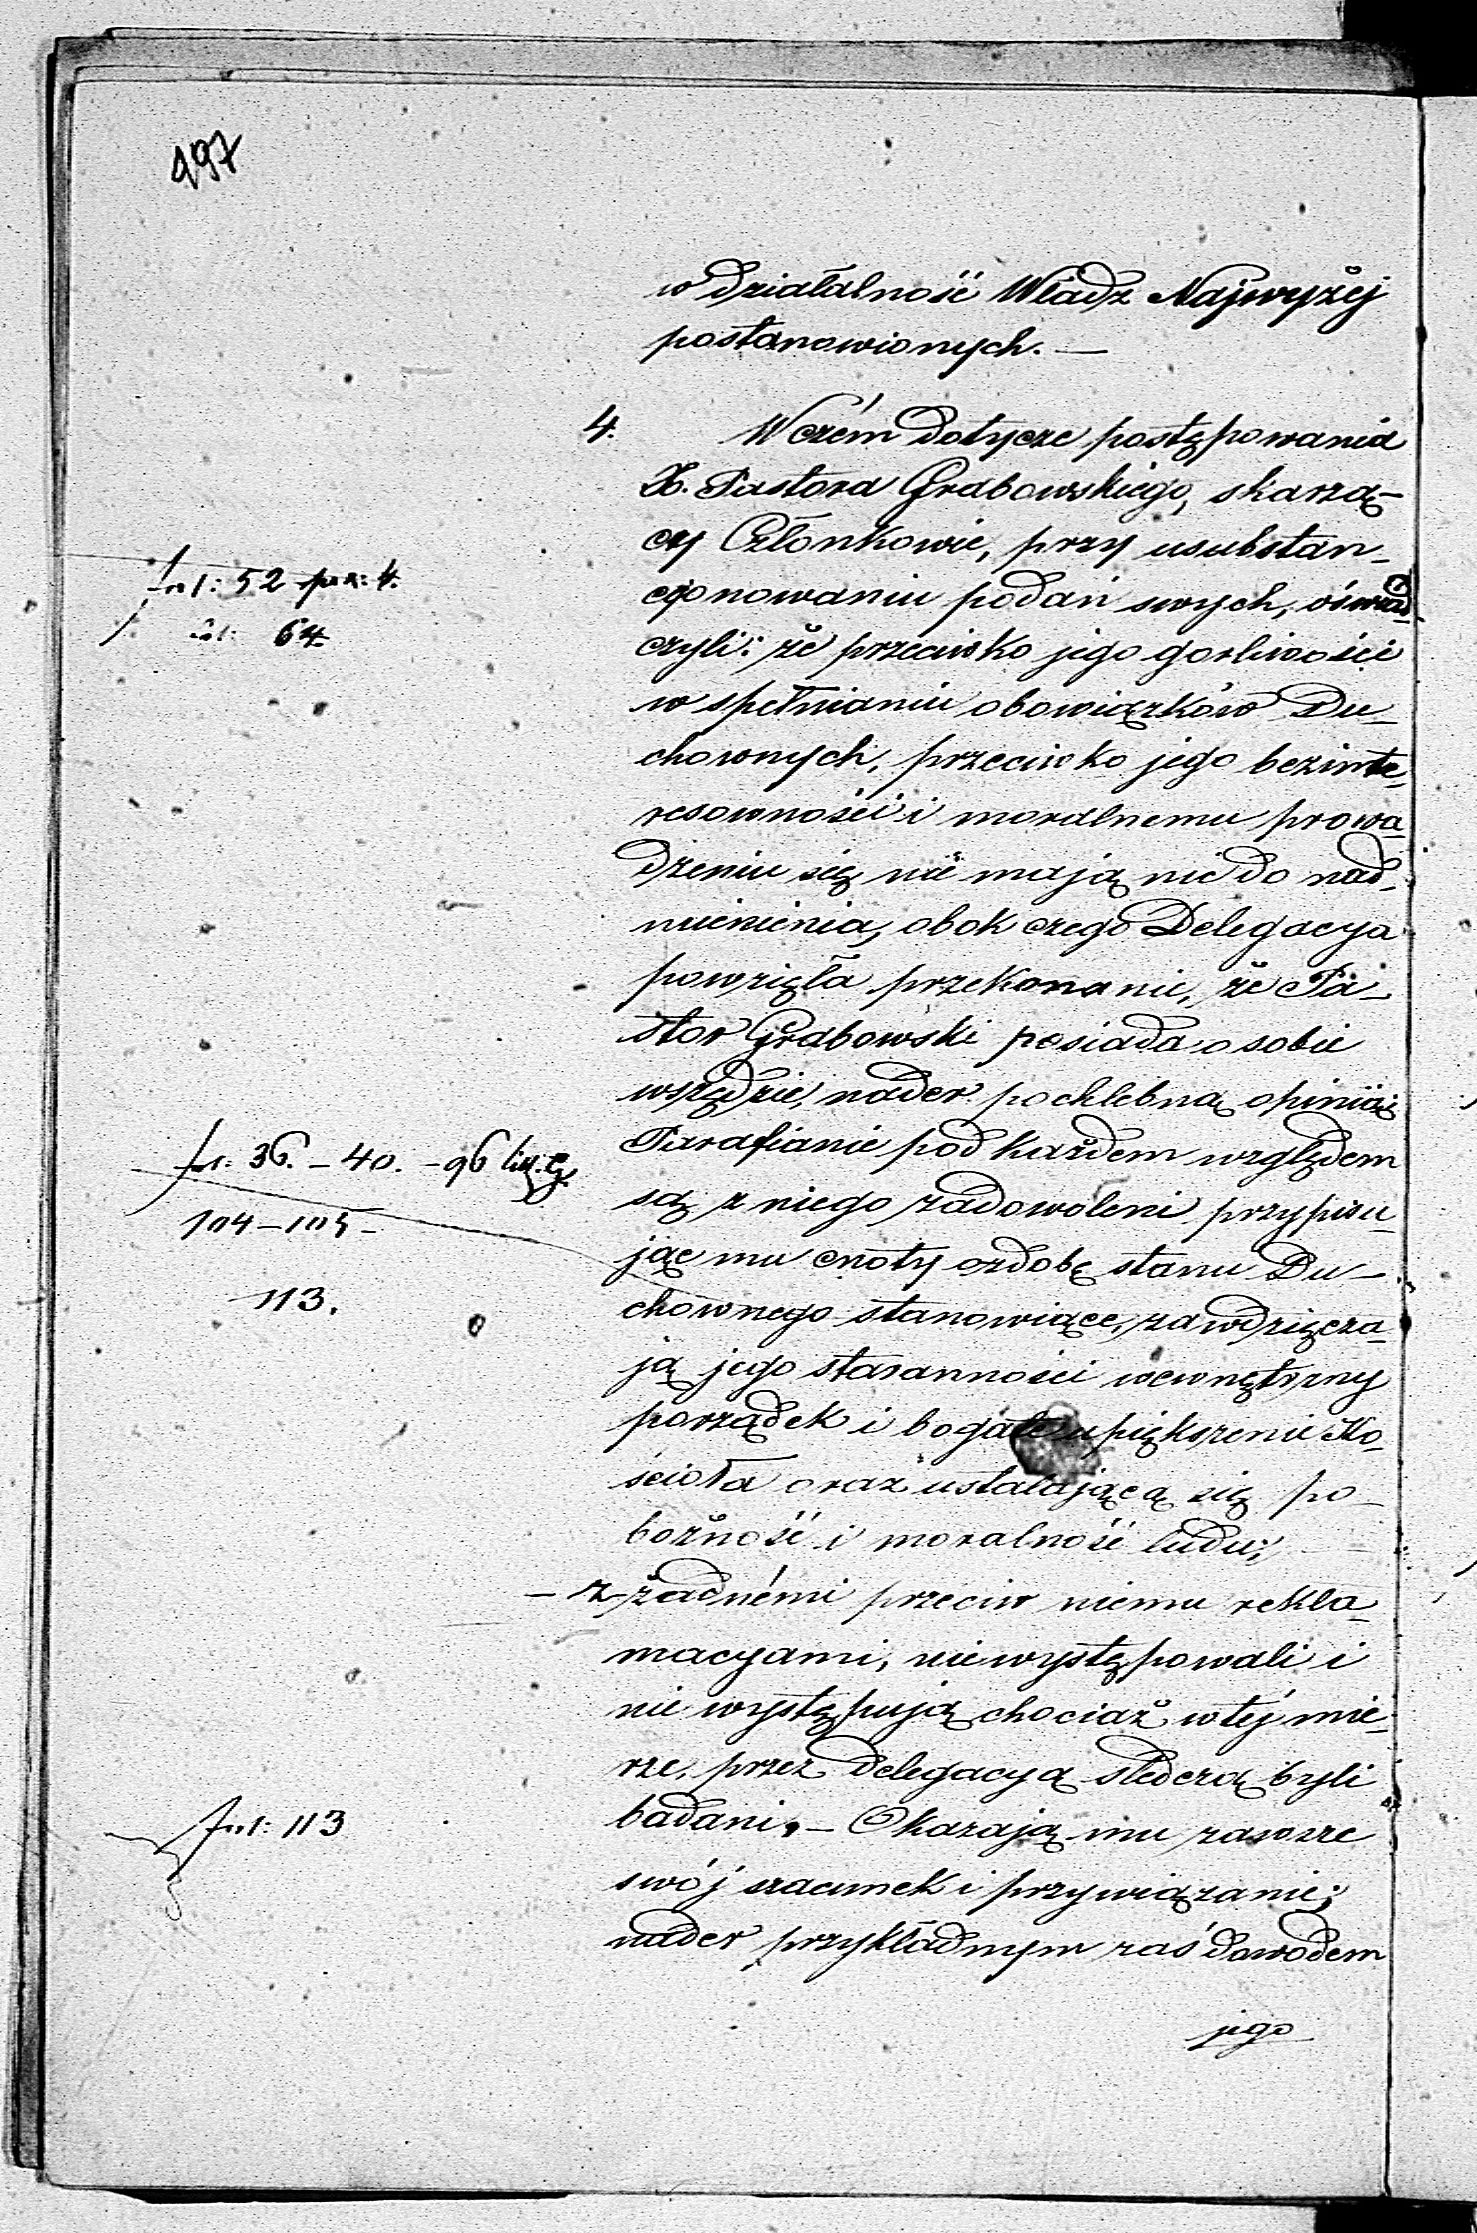 497
w działalność Władz Najwyżej
postanowionych. —
4. W czém dotycze postępowania
X. Pastora Grabowskiego, skarzą-
cy Członkowie, przy usubstan-
cyonowaniu podań swych, oświad-
czyli: że przeciwko jego gorliwości
w spełnianiu obowiązków Du-
chownych, przeciwko jego bezinte-
resowności i moralnemu prowa-
dzeniu się nie mają nic do nad-
mienienia, obok czego Delegacya
powzięła przekonanie, że Pa-
stor Grabowski posiada o sobie
wszędzie, nader pochlebną opinią
Parafianie pod każdem względem
są z niego zadowoleni przypisu-
jąc mu cnoty ozdobę stanu Du-
chownego stanowiące, zawdzięcza-
ją jego staranności wewnętrzny
porządek i bogate upiększenie Ko-
ścioła oraz ustalającą się po-
bożność i moralność ludu;
— z żadnémi przeciw niemu rekla-
macyami, nie występowali i
nie występują chociaż w téj mie-
rze, przez Delegacyą śledczą byli
badani. — Okazają mu zawsze
swój szacunek i przywiązanie;
nader przykładnym zaś dowodem
jego
fol: 52 poz: 4.
64
fol: 36. – 40. – 96
104 – 105 –
113.
fol: 113